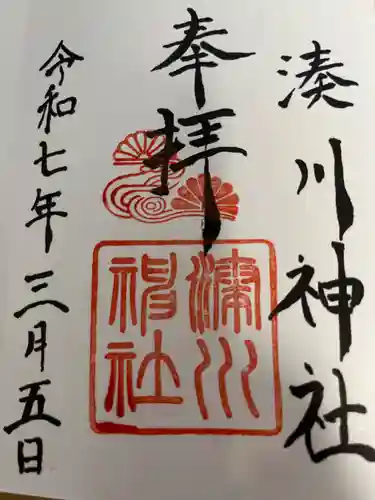 湊川神社
奉拝
湊川
神社
令和七年三月五日